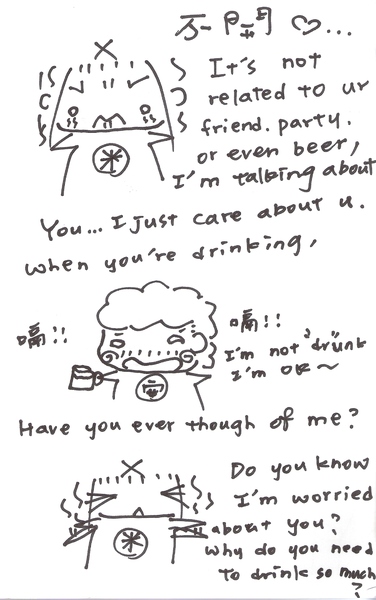 It's not
related to ur
friend. party.
or even beer,
I'm talking about
You... I just care about u.
when you're drinking,
嗝!!
嗝!!
I'm not "drunk
I'm OK~
Have you ever though of me?
Do you know
I'm worried
about you?
why do you need
to drink so much
?